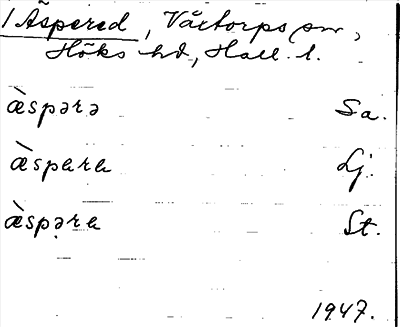 1 Äspered, Växtorps sn,
Höks hd, Hall. l.
æ̀spərə Sa.
æ̀spɐrɐ Lj.
æ̀spə̣rɐ St.
1947.